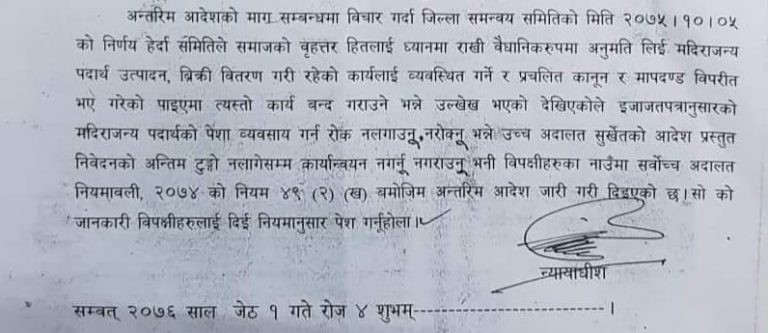 अन्तरिम आदेशको माग सम्बन्धमा विचार गर्दा जिल्ला समन्वय समितिको मिति २०७५।१०।०५
को निर्णय हेर्दा समितिले समाजको वृहत्तर हितलाई ध्यानमा राखी वैधानिकरुपमा अनुमति लिई मदिराजन्य
पदार्थ उत्पादन, बिक्री वितरण गरी रहेको कार्यलाई व्यवस्थित गर्ने र प्रचलित कानून र मापदण्ड विपरीत
भए गरेको पाइएमा त्यस्तो कार्य बन्द गराउने भन्ने उल्लेख भएको देखिएकोले इजाजतपत्रानुसारको
मदिराजन्य पदार्थको पेशा व्यवसाय गर्न रोक नलगाउनू, नरोक्नू भन्ने उच्च अदालत सुर्खेतको आदेश प्रस्तुत
निवेदनको अन्तिम टुङ्गो नलागेसम्म कार्यान्वयन नगर्नू नगराउनू भनी विपक्षीहरुका नाउँमा सर्वोच्च अदालत
नियमावली, २०७४ को नियम ४९ (२) (ख) बमोजिम अन्तरिम आदेश जारी गरी दिइएको छ। सो को
जानकारी विपक्षीहरुलाई दिई नियमानुसार पेश गर्नूहोला।
न्यायाधीश
सम्बत् २०७६ साल जेठ १ गते रोज ४ शुभम्---------------------------।